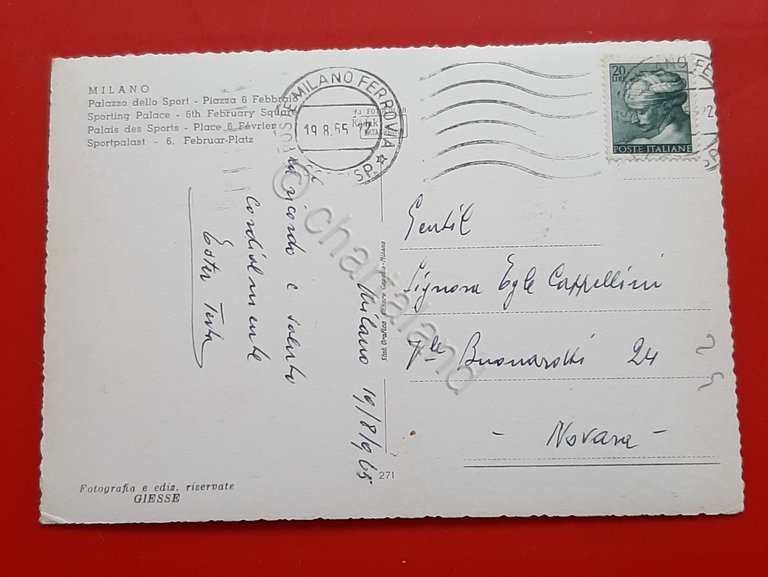 MILANO
Palazzo dello Sport - Piazza 6 Febbraio
Sporting Palace - 6th February Square
Palais des Sports - Place 6 Février
Sportpalast - 6. Februar-Platz
POSTE MILANO FERROVIA
19.8.65
20
LIRE
POSTE ITALIANE
Milano 19/8/965
ricordo e saluto
Cordialmente
Ester
Gentil
Signora Egle Cappellini
V.le Buonarroti 24
- Novara -
271
Fotografia e ediz. riservate
GIESSE
© chartaland